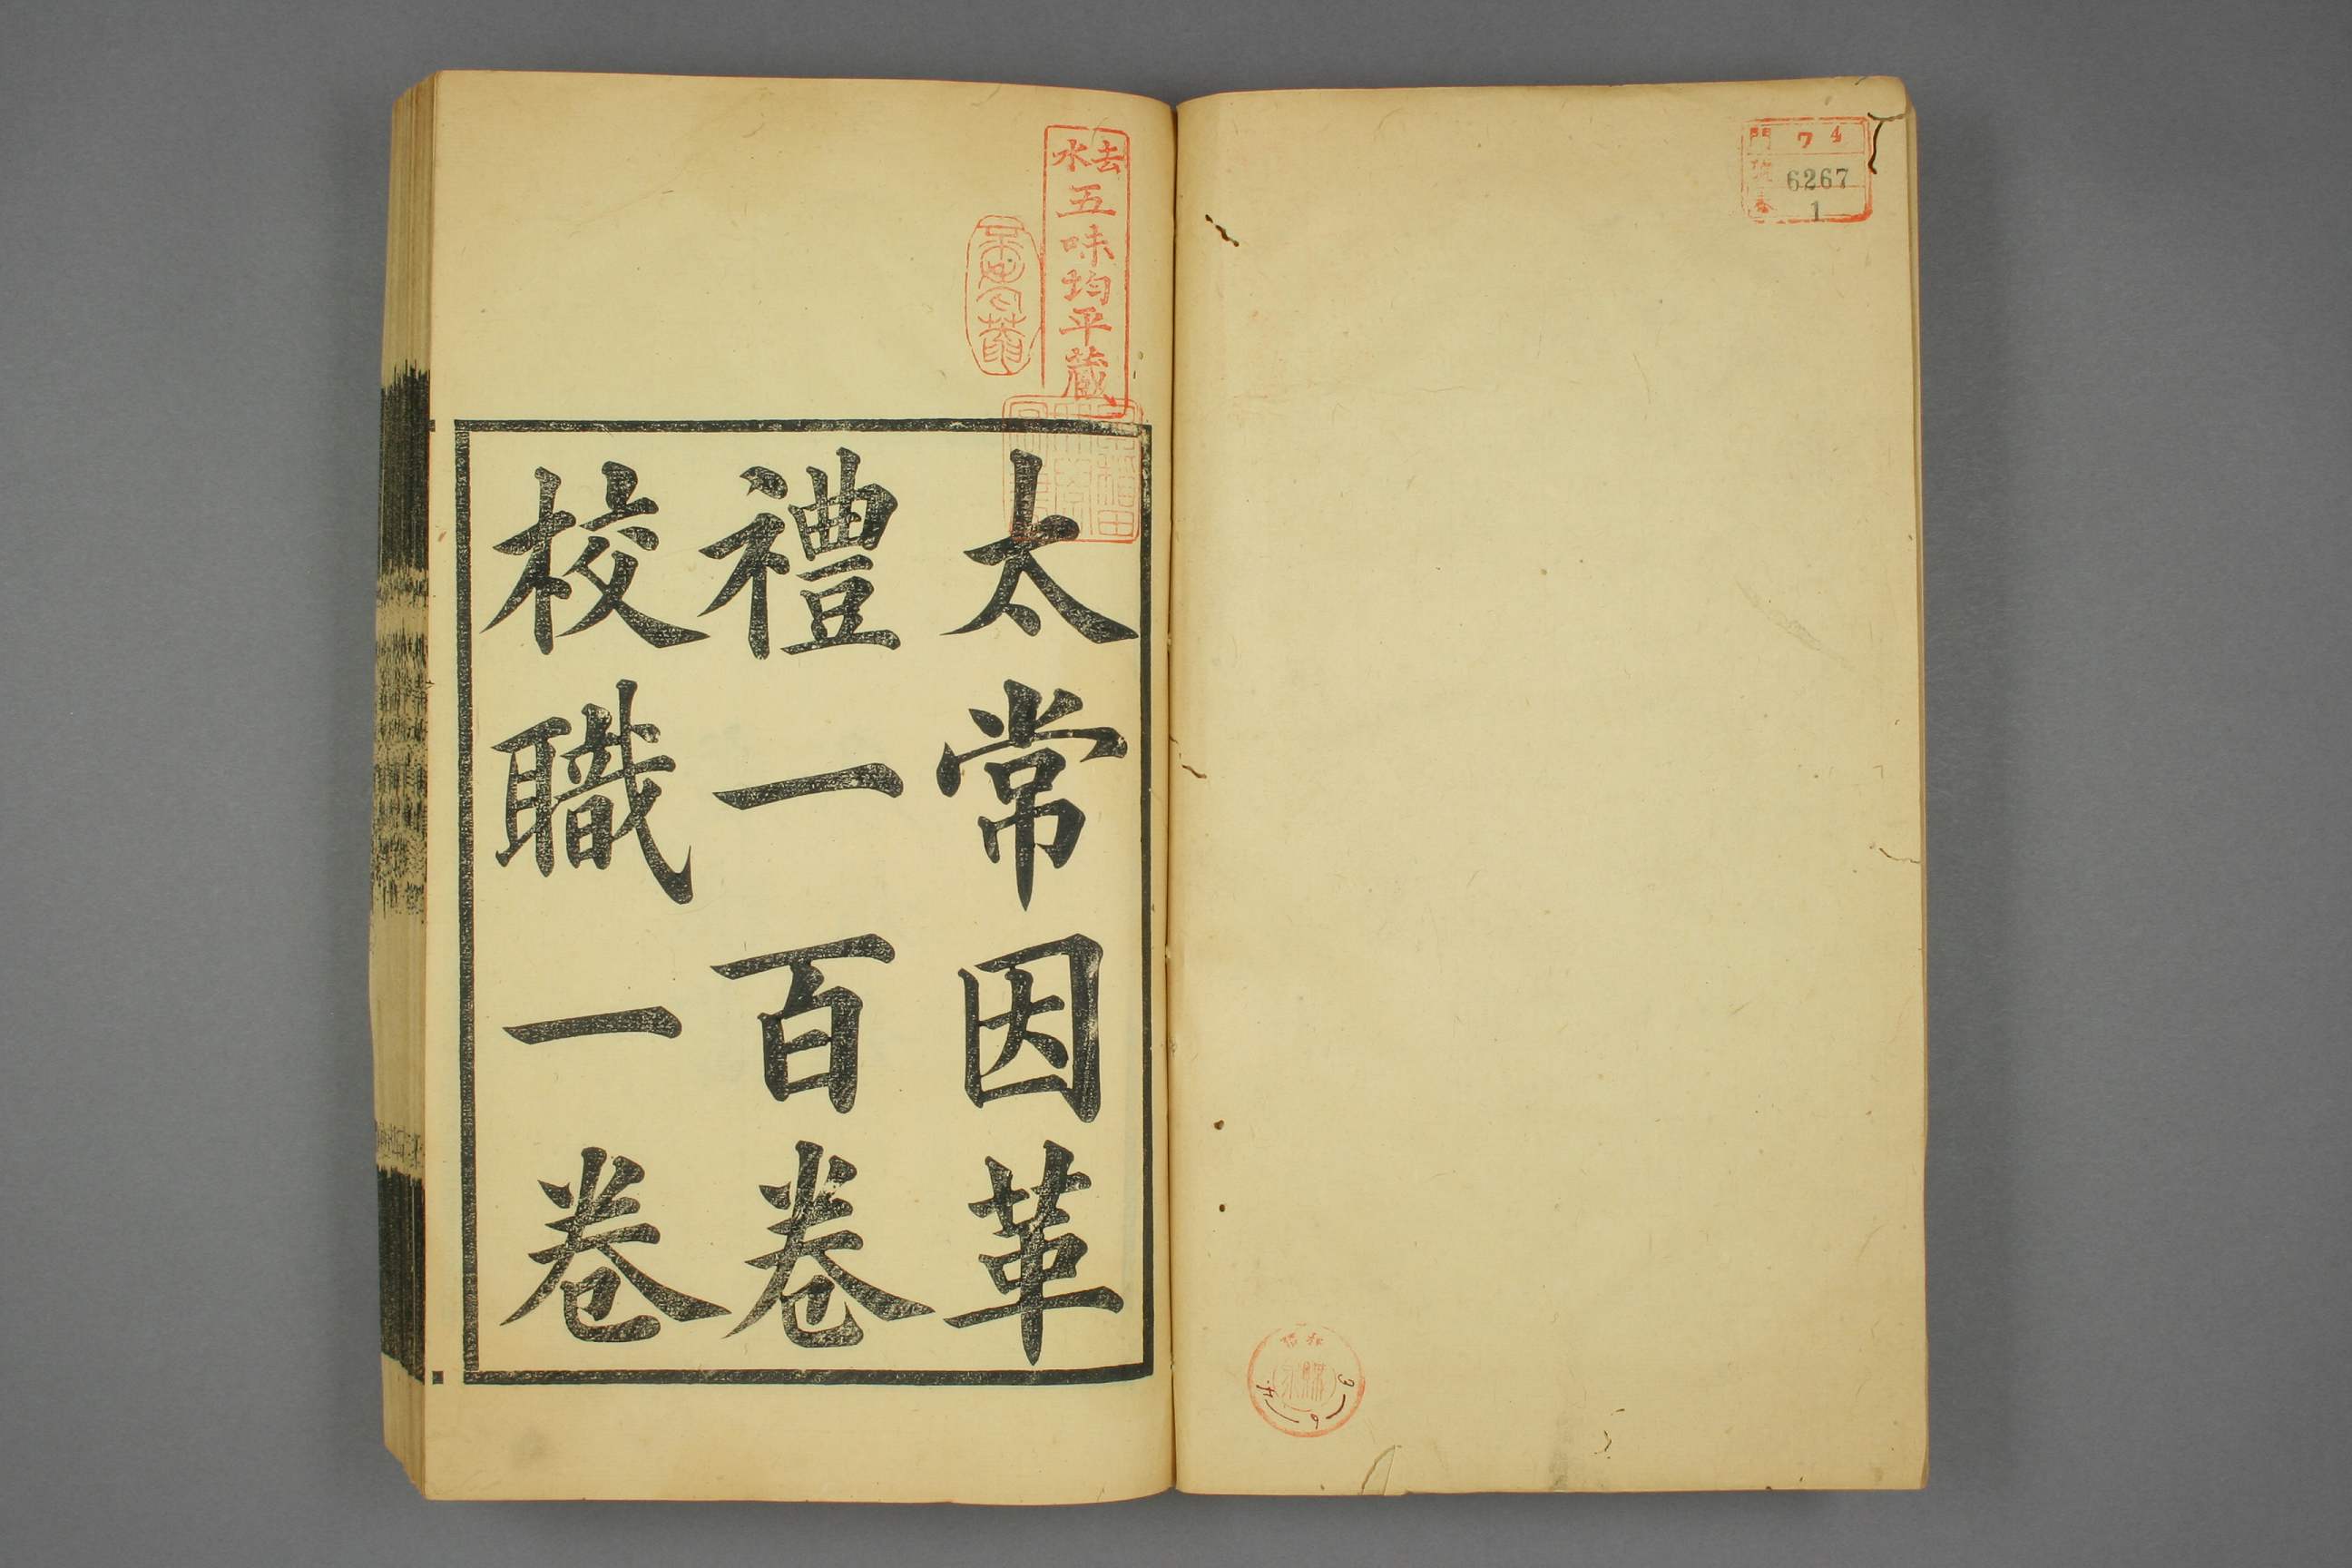 門 ワ 4
號 6267
卷 1
太常因革
禮一百卷
校職一卷
去水
五味均平蔵